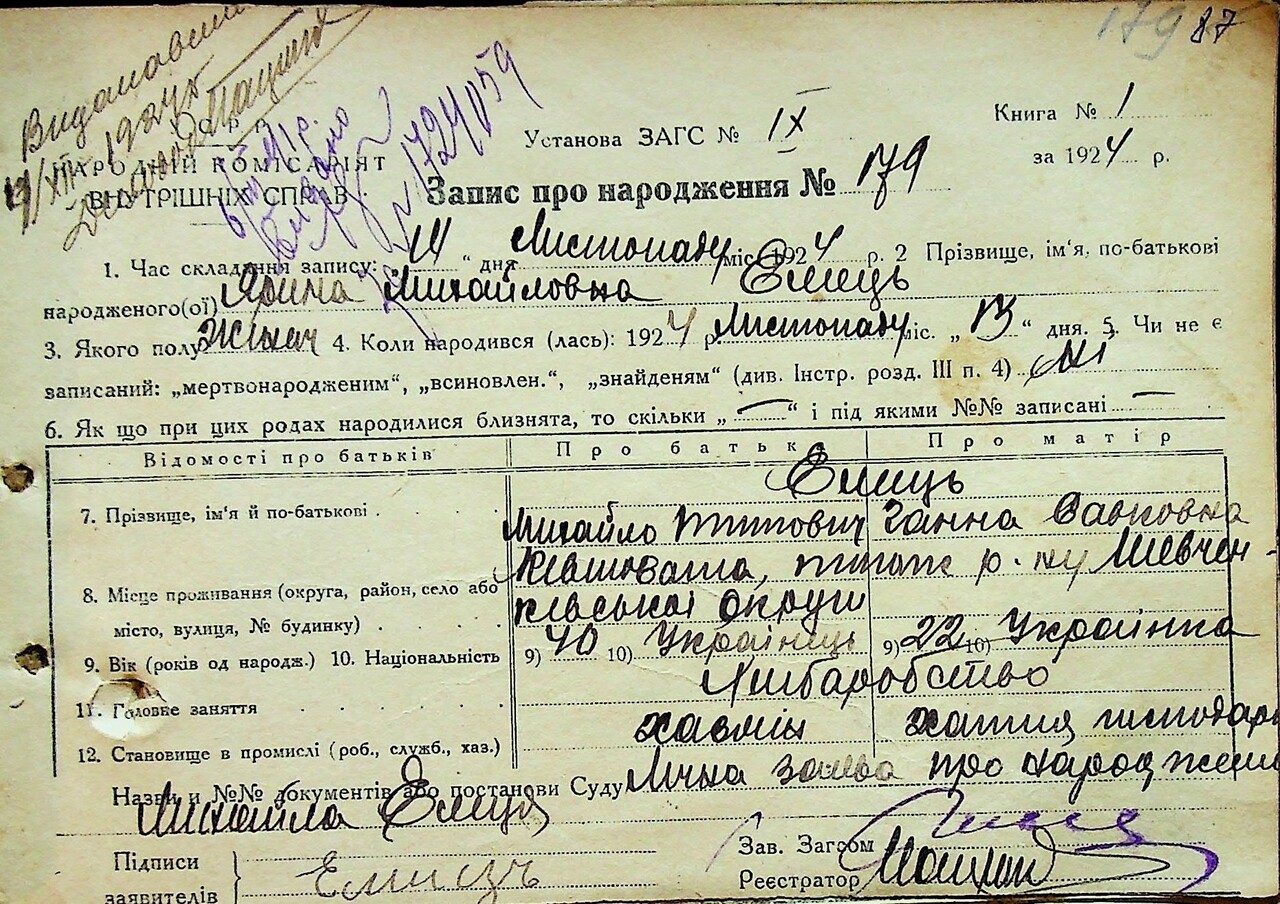 179 87
Видана
1924
У.С.Р.Р.
НАРОДНІЙ КОМІСАРІЯТ
ВНУТРІШНІХ СПРАВ
Видано
№ 1724059
Установа ЗАГС № IX
Книга № 1
за 1924 р.
Запис про народження № 179
1. Час складання запису: „ “ дня Листопаду міс. 1924 р. 2 Прізвище, ім‘я, по-батькові
народженого(ої) Ярина Михайловна Емець
3. Якого полу жіноч 4. Коли народився (лась): 1924 р. Листопаду міс. „13“ дня. 5. Чи не є
записаний: „мертвонародженим“, „всиновлен.“, „знайденям“ (див. Інстр. розд. III п. 4) Ні
6. Як що при цих родах народилися близнята, то скільки „—“ і під якими №№ записані —
Відомості про батьків Про батька Про матір
Емець
7. Прізвище, ім‘я й по-батькові
Михайло Титович Ганна Савковна
Ківшовата, р-ну Шевчен-
8. Місце проживання (округа, район, село або
ківської округи
місто, вулиця, № будинку)
9. Вік (років од народж.) 10. Національність 9) 40 10) Українець 9) 22 10) Українка
Хліборобство
11. Головне заняття
хазяїн хатня господарк
12. Становище в промислі (роб., служб., хаз.)
Назви и №№ документів або постанови Суду Лічна заява про народження
Михайла Емця
Підписи
заявителів
Емець
Зав. Загсом
Реєстратор